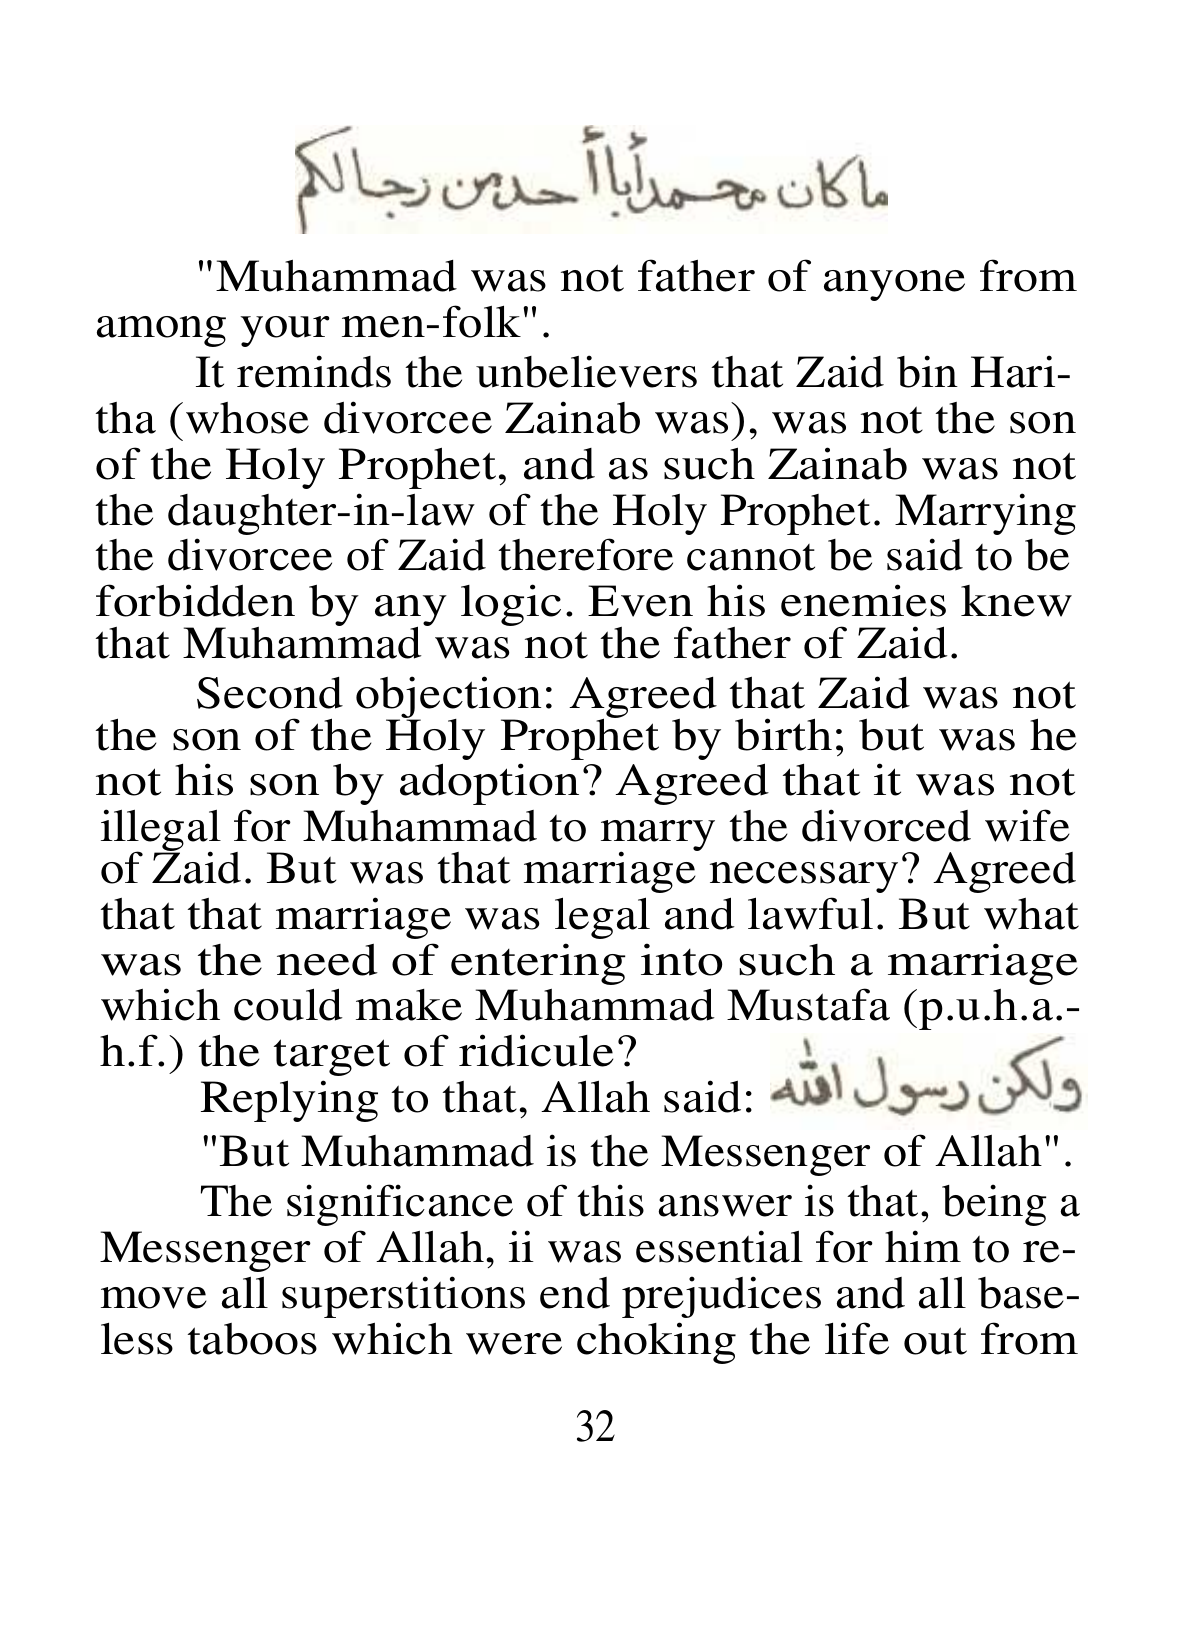 ما كان محمد أبا أحد من رجالكم
"Muhammad was not father of anyone from
among your men-folk".
It reminds the unbelievers that Zaid bin Hari-
tha (whose divorcee Zainab was), was not the son
of the Holy Prophet, and as such Zainab was not
the daughter-in-law of the Holy Prophet. Marrying
the divorcee of Zaid therefore cannot be said to be
forbidden by any logic. Even his enemies knew
that Muhammad was not the father of Zaid.
Second objection: Agreed that Zaid was not
the son of the Holy Prophet by birth; but was he
not his son by adoption? Agreed that it was not
illegal for Muhammad to marry the divorced wife
of Zaid. But was that marriage necessary? Agreed
that that marriage was legal and lawful. But what
was the need of entering into such a marriage
which could make Muhammad Mustafa (p.u.h.a.-
h.f.) the target of ridicule?
Replying to that, Allah said: ولكن رسول الله
"But Muhammad is the Messenger of Allah".
The significance of this answer is that, being a
Messenger of Allah, ii was essential for him to re-
move all superstitions end prejudices and all base-
less taboos which were choking the life out from
32